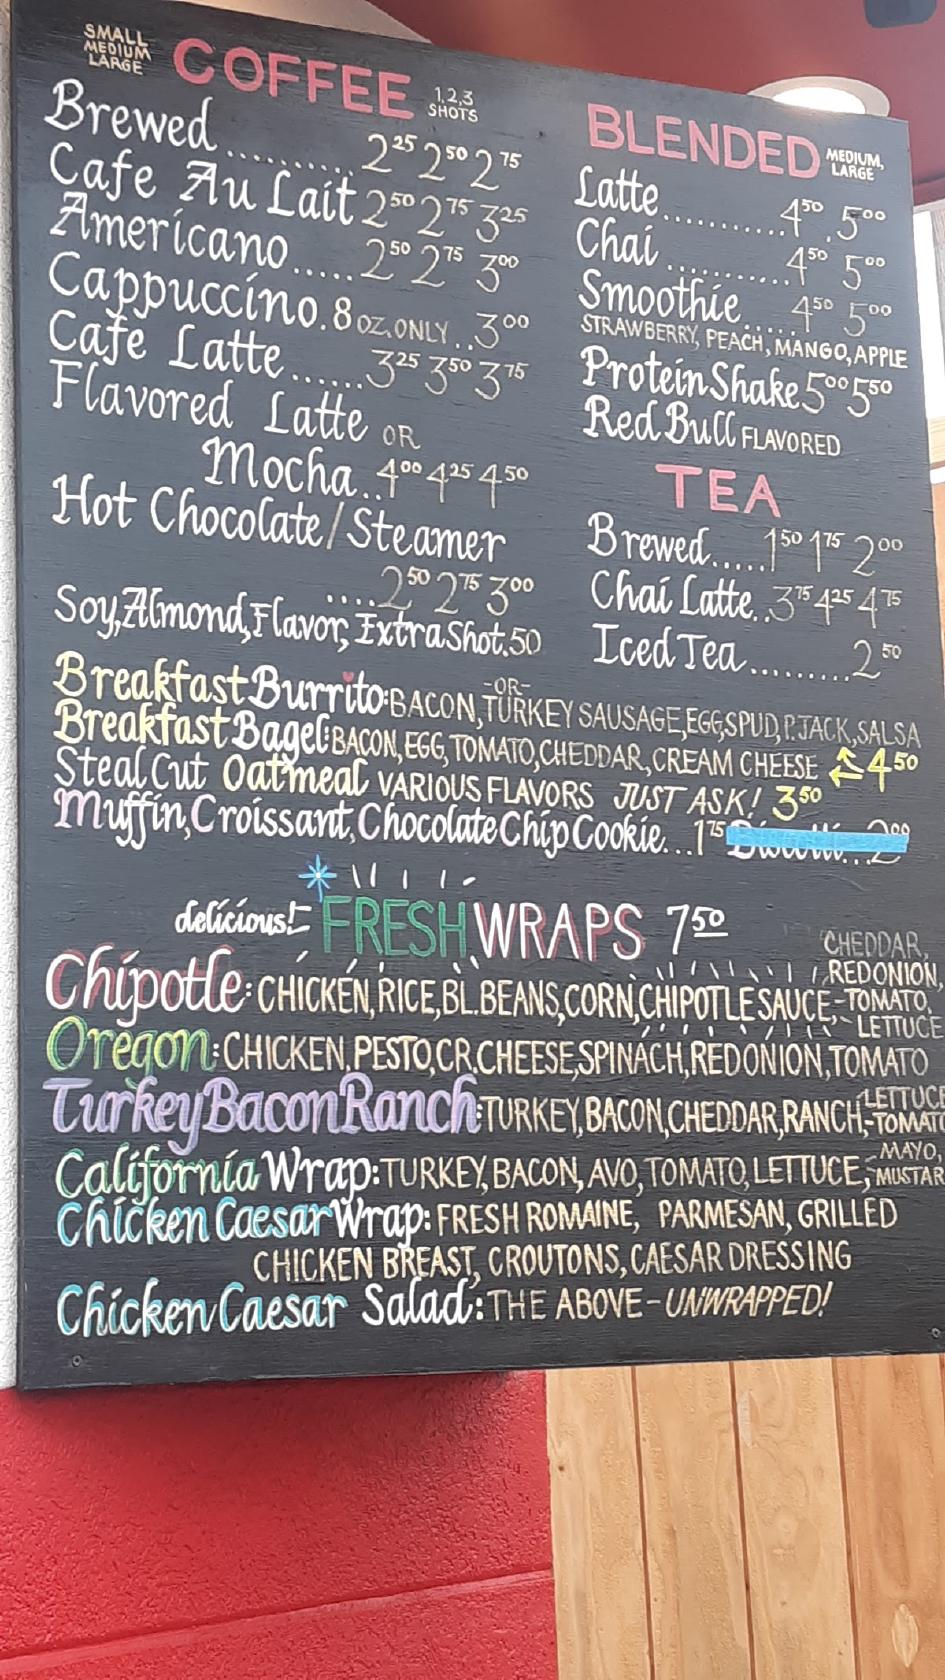 SMALL
MEDIUM
LARGE
COFFEE
1,2,3
SHOTS
Brewed......... 2²⁵ 2⁵⁰ 2⁷⁵
Cafe Au Lait 2⁵⁰ 2⁷⁵ 3²⁵
Americano ..... 2⁵⁰ 2⁷⁵ 3⁰⁰
Cappuccino. 8 OZ. ONLY.. 3⁰⁰
Cafe Latte ...... 3²⁵ 3⁵⁰ 3⁷⁵
Flavored Latte OR
Mocha.. 4⁰⁰ 4²⁵ 4⁵⁰
Hot Chocolate/Steamer
.... 2⁵⁰ 2⁷⁵ 3⁰⁰
Soy, Almond, Flavor, Extra Shot .50
BLENDED
MEDIUM,
LARGE
Latte........... 4⁵⁰ 5⁰⁰
Chai .......... 4⁵⁰ 5⁰⁰
Smoothie ..... 4⁵⁰ 5⁰⁰
STRAWBERRY, PEACH, MANGO, APPLE
Protein Shake 5⁰⁰ 5⁵⁰
Red Bull FLAVORED
TEA
Brewed..... 1⁵⁰ 1⁷⁵ 2⁰⁰
Chai Latte.. 3⁷⁵ 4²⁵ 4⁷⁵
Iced Tea ......... 2⁵⁰
Breakfast Burrito: BACON, -OR- TURKEY SAUSAGE, EGG, SPUD, P. JACK, SALSA
Breakfast Bagel: BACON, EGG, TOMATO, CHEDDAR, CREAM CHEESE 4⁵⁰
Steal Cut Oatmeal VARIOUS FLAVORS JUST ASK! 3⁵⁰
Muffin, Croissant, Chocolate Chip Cookie... 1⁷⁵
delicious! FRESH WRAPS 7⁵⁰
Chipotle: CHICKEN, RICE, BL. BEANS, CORN, CHIPOTLE SAUCE,
CHEDDAR,
RED ONION,
TOMATO,
LETTUCE
Oregon: CHICKEN, PESTO, CR. CHEESE, SPINACH, RED ONION, TOMATO
Turkey Bacon Ranch: TURKEY, BACON, CHEDDAR, RANCH,
LETTUCE
TOMATO
California Wrap: TURKEY, BACON, AVO, TOMATO, LETTUCE,
MAYO,
MUSTAR
Chicken Caesar Wrap: FRESH ROMAINE, PARMESAN, GRILLED
CHICKEN BREAST, CROUTONS, CAESAR DRESSING
Chicken Caesar Salad: THE ABOVE - UNWRAPPED!